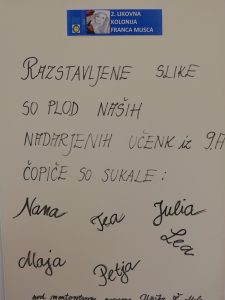 2. LIKOVNA
KOLONIJA
FRANCA MUSCA
RAZSTAVLJENE SLIKE
SO PLOD NAŠIH
NADARJENIH UČENK iz 9.A
ČOPIČE SO SUKALE:
Nana Tea Julia
Lea
Maja Petja
pod mentorstvom